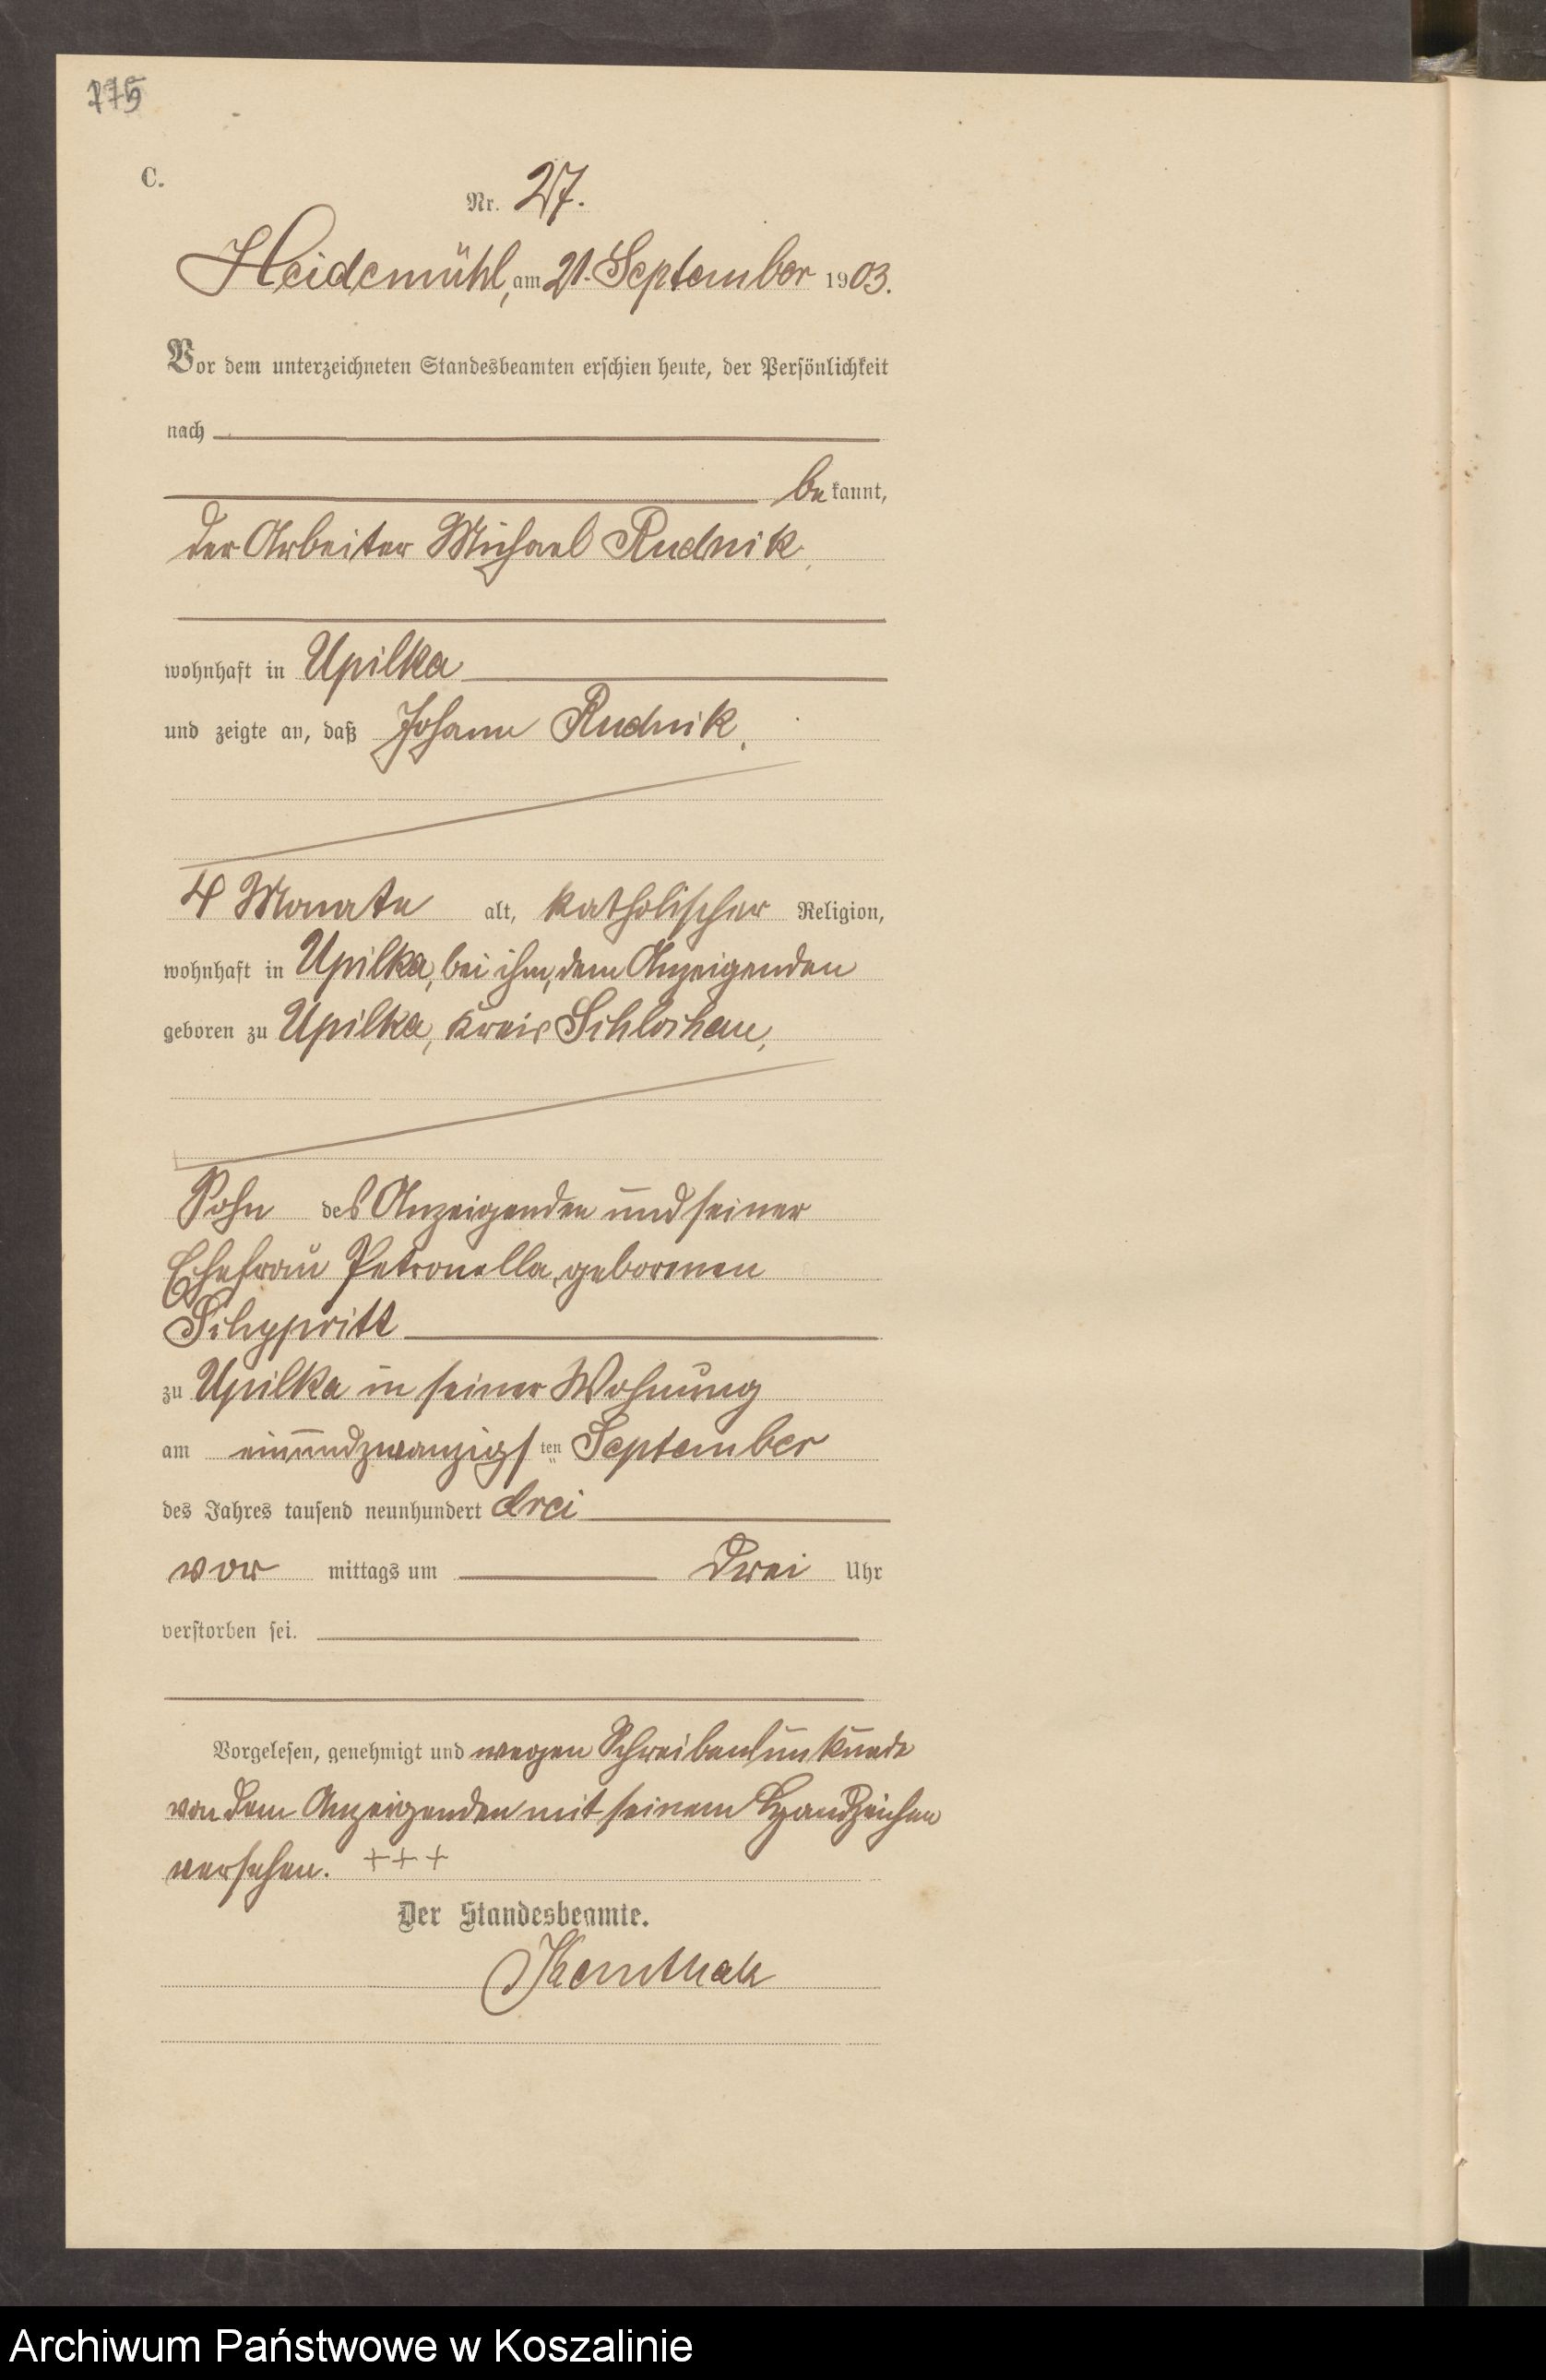 175
C.
Nr. 27.
Heidemühl, am 21. September 1903.
Vor dem unterzeichneten Standesbeamten erschien heute, der Persönlichkeit
nach
bekannt,
der Arbeiter Michael Rudnik,
wohnhaft in Upilka
und zeigte an, daß Johann Rudnik,
4 Monate alt, katholischer Religion,
wohnhaft in Upilka, bei ihm, dem Anzeigenden
geboren zu Upilka, Kreis Schlochau,
Sohn des Anzeigenden und seiner
Ehefrau Petronella, geborenen
zu Upilka in seiner Wohnung
am einundzwanzigsten September
des Jahres tausend neunhundert drei
vor mittags um drei Uhr
verstorben sei.
Vorgelesen, genehmigt und wegen Schreibensunkunde
von dem Anzeigenden mit seinem Handzeichen
versehen. +++
Der Standesbeamte.
Archiwum Państwowe w Koszalinie